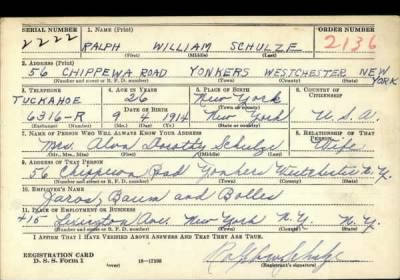 SERIAL NUMBER 1. NAME (Print) ORDER NUMBER
2222 RALPH WILLIAM SCHULZE 2136
(First) (Middle) (Last)
2. ADDRESS (Print)
56 CHIPPEWA ROAD YONKERS WESTCHESTER NEW YORK
(Number and street or R. F. D. number) (Town) (County) (State)
3. TELEPHONE 4. AGE IN YEARS 5. PLACE OF BIRTH 6. COUNTRY OF CITIZENSHIP
TUCKAHOE 26 New York
DATE OF BIRTH (Town or county)
6316-R 9 4 1914 New York U.S.A.
(Exchange) (Number) (Mo.) (Day) (Yr.) (State or country)
7. NAME OF PERSON WHO WILL ALWAYS KNOW YOUR ADDRESS 8. RELATIONSHIP OF THAT PERSON
Mrs. Dorothy Schulze Wife
(Mr., Mrs., Miss) (First) (Middle) (Last)
9. ADDRESS OF THAT PERSON
56 Chippewa Road Yonkers Westchester N.Y.
(Number and street or R. F. D. number) (Town) (County) (State)
10. EMPLOYER'S NAME
Jaros, Baum and Bolles
11. PLACE OF EMPLOYMENT OR BUSINESS
415 Lexington Ave. New York N.Y. N.Y.
(Number and street or R. F. D. number) (Town) (County) (State)
I AFFIRM THAT I HAVE VERIFIED ABOVE ANSWERS AND THAT THEY ARE TRUE.
REGISTRATION CARD
D. S. S. Form 1 16—17105
(Registrant's signature)